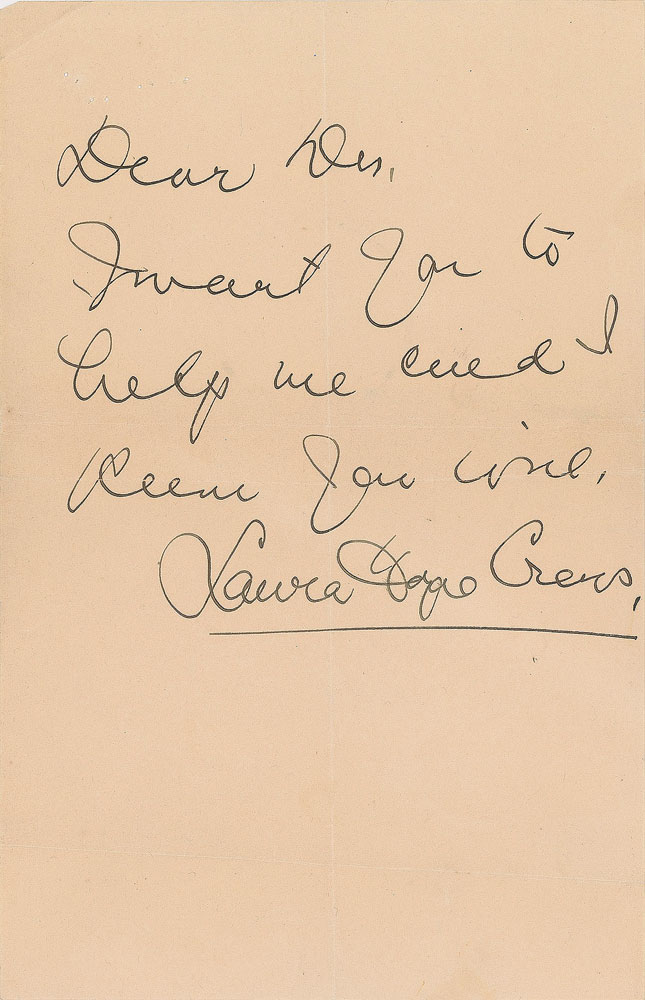 Dear Des,
I want you to
help me and I
know you will.
Laura Hope Crews,